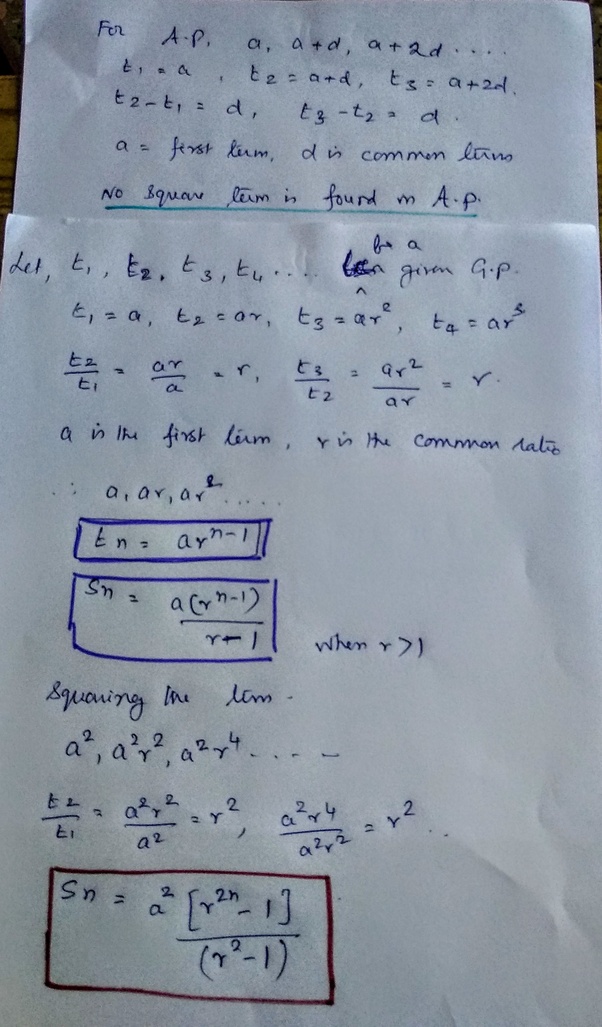 For A.P, a, a+d, a+2d ....
t₁ = a , t₂ = a+d, t₃ = a+2d.
t₂-t₁ = d, t₃-t₂ = d.
a = first term, d is common terms
No square term is found in A.P.
be a
Let, t₁, t₂, t₃, t₄ .... given G.P.
t₁ = a, t₂ = ar, t₃ = ar², t₄ = ar³
t₂/t₁ = ar/a = r, t₃/t₂ = ar²/ar = r.
a is the first term, r is the common ratio
∴ a, ar, ar² .....
tn = ar^(n-1)
Sn = a(r^n-1)/(r-1) when r>1
Squaring the term -
a², a²r², a²r⁴ .... -
t₂/t₁ = a²r²/a² = r², a²r⁴/a²r² = r² ..
Sn = a² [r^(2n) - 1]/(r²-1)